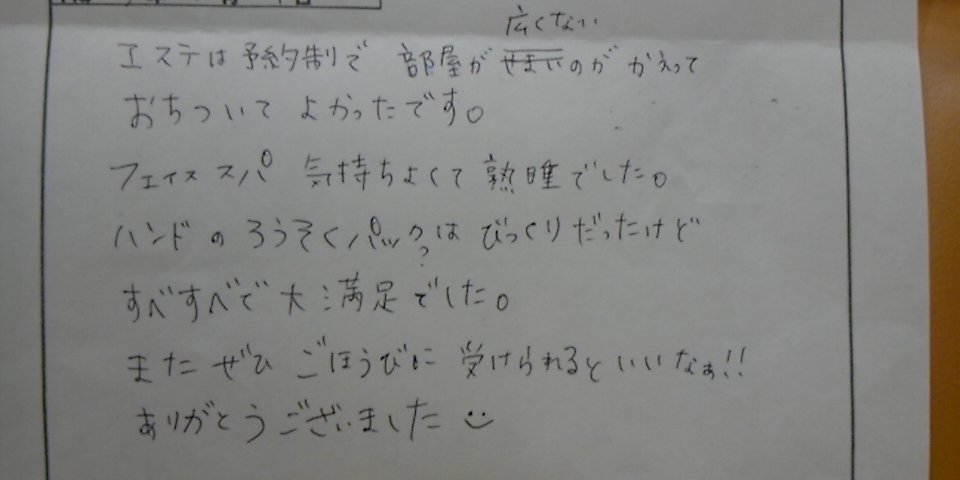 広くない
エステは予約制で 部屋が せまいのが かえって
おちついて よかったです。
フェイス スパ 気持ちよくて 熟睡でした。
ハンドの ろうそくパックは びっくりだったけど
?
すべすべで 大満足でした。
また ぜひ ごほうびに 受けられるといいなぁ!!
ありがとうございました